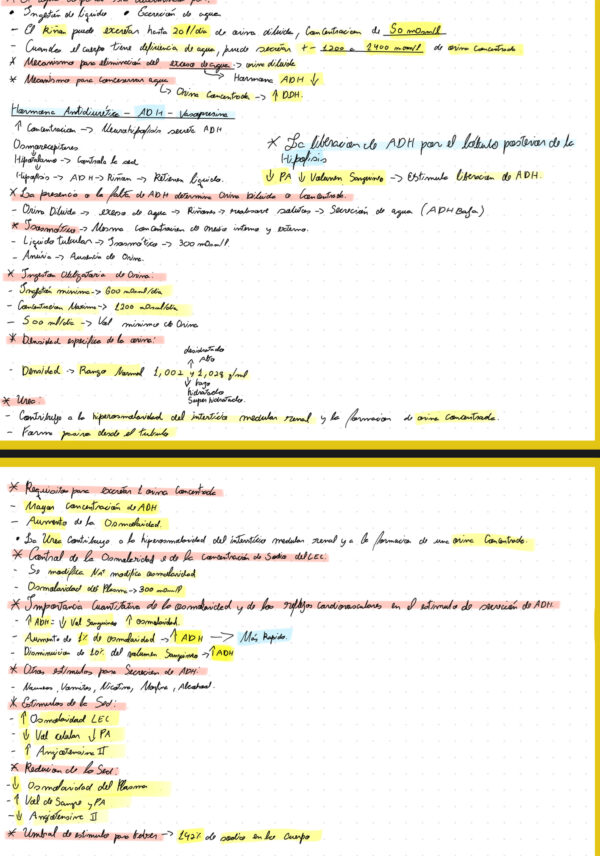 • Ingestión de líquido • Excreción de agua
- El Riñon puede excretar hasta 20 l/día de orina diluida, Concentracion de 50 mOsm/l
- Cuando el cuerpo tiene deficiencia de agua, puede secretar +- 1200 a 1400 mosm/l de orina Concentrada
* Mecanismo para eliminación del exceso de agua -> orina diluida
* Mecanismo para conservar agua -> Hormona ADH ↓
↳ Orina Concentrada -> ↑
Hormona Antidiurética - ADH - Vasopresina
↑ Concentracion -> Neurohipofisis secreta ADH
Osmoreceptores
Hipotalamo -> Controla la sed
Hipofisis -> ADH -> Riñon -> Retienen liquido.
* La liberacion de ADH por el lobulo posterior de la Hipofisis
↓ PA ↓ Volumen Sanguineo -> Estimula liberacion de ADH.
* La presencia o la falta de ADH determina Orina Diluida o Concentrada.
- Orina Diluida -> exceso de agua -> Riñones -> reabsort solutos -> Secreción de agua (ADH Baja)
* Isosmótico -> Misma Concentracion de medio interno y externo.
- Liquido tubular -> Isosmótico -> 300 mOsm/l.
- Anuria -> Ausencia de Orina.
* Obligatoria de Orina:
- minimo -> 600 /día
- Concentracion Maxima -> 1200 /día
- 500 ml/día -> Vol minimo de Orina
* Densidad especifica de la orina:
deshidratado
↑ Alto
- Densidad -> Rango Normal 1,002 y 1,028 g/ml
↓ bajo
hidratados
Super hidratados.
* Urea:
- Contribuye a la hiperosmolaridad del intersticio medular renal y la formacion de orina concentrada.
- Forma pasiva desde el tubulo
* Requisitos para excretar 1 orina Concentrada
- Mayor concentración de ADH
- Aumento de la Osmolaridad.
• La Urea Contribuye a la hiperosmolaridad del intersticio medular renal y a la formacion de una orina Concentrada.
* Control de la Osmolaridad e de la concentración de Sodio del LEC:
- Se modifica Na+ modifica osmolaridad
- Osmolaridad del Plasma -> 300 mosm/l
* Importancia Cuantitativa de la osmolaridad y de los reflejos cardiovasculares en el estimulo de secreción de ADH
- ↑ ADH = ↓ Vol Sanguineo ↑ osmolaridad.
- Aumento de 1% de osmolaridad -> ↑ ADH -> Más Rapido.
- Disminucion de 10% del volumen Sanguineo -> ↑ ADH
* Otros estimulos para Secrecion de ADH:
- Nauseas, Vomitos, Nicotina, Morfina, Alcohol.
* Estimulos de la Sed:
- ↑ Osmolaridad LEC
- ↓ Vol celular ↓ PA
- ↑ Angiotensina II
* Reducion de la Sed:
- ↓ Osmolaridad del Plasma
- ↑ Vol de Sangre y PA
- ↓ Angiotensina II
* Umbral de estimulo para beber -> 142% de sodio en los cuerpo